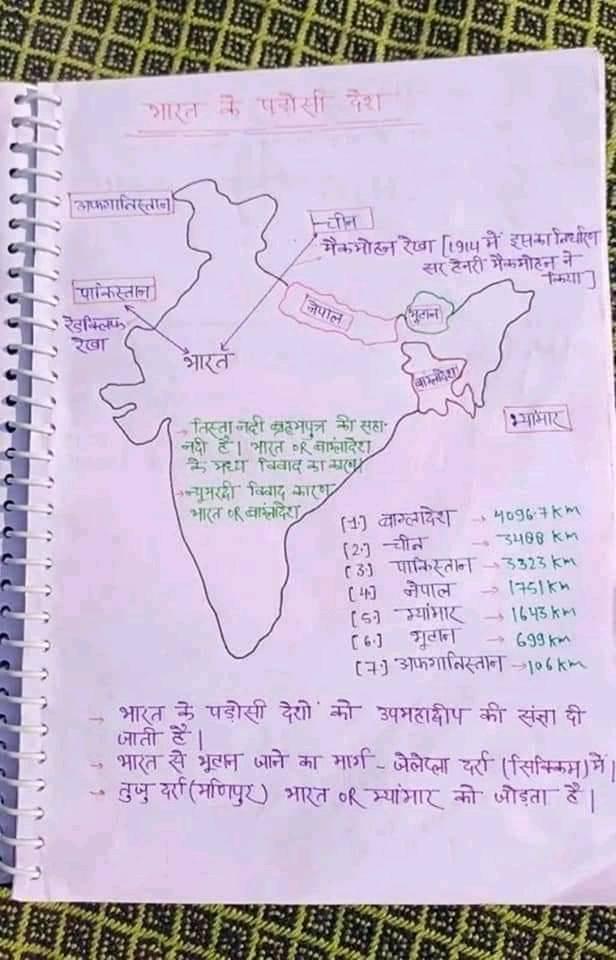 भारत के पड़ोसी देश
अफगानिस्तान
चीन
मैकमोहन रेखा [1914 में इसका निर्धारण
सर हेनरी मैकमोहन ने
किया]
पाकिस्तान
रेडक्लिफ
रेखा
नेपाल
भूटान
भारत
बांग्लादेश
म्यांमार
→ तिस्ता नदी ब्रहमपुत्र की सहा-
नदी है। भारत OR बांग्लादेश
के मध्य विवाद का कारण।
→ न्युमरदी विवाद कारण
भारत OR बांग्लादेश
[1.] बांग्लादेश → 4096.7 KM
[2.] चीन → 3488 KM
[3.] पाकिस्तान → 3323 KM
[4.] नेपाल → 1751 KM
[5.] म्यांमार → 1643 KM
[6.] भूटान → 699 KM
[7.] अफगानिस्तान → 106 KM
→ भारत के पड़ोसी देशों को उपमहाद्वीप की संज्ञा दी
जाती है।
→ भारत से भूटान जाने का मार्ग - जेलेप्ला दर्रा (सिक्किम) में।
→ तुजु दर्रा (मणिपुर) भारत OR म्यांमार को जोड़ता है।